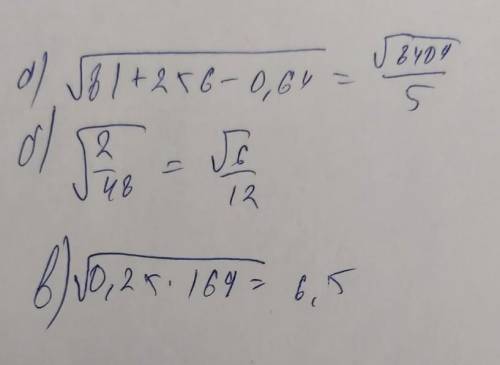 а) √81+256-0,64 = √8409/5
б) √2/48 = √6/12
в) √0,25·169 = 6,5